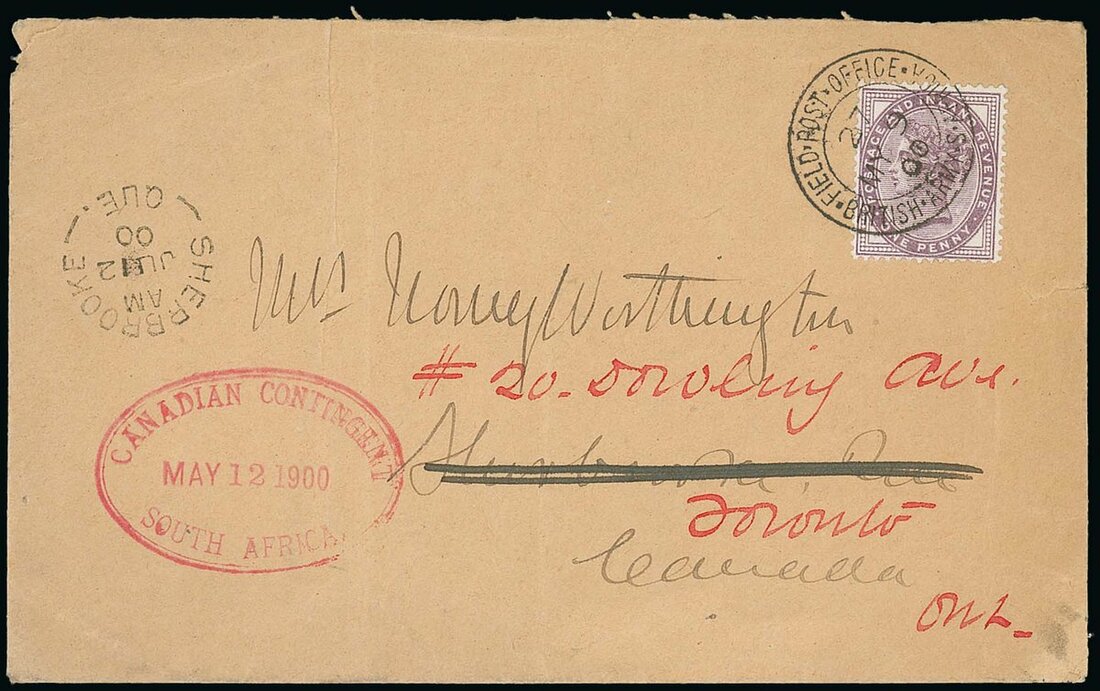 FIELD·POST·OFFICE·
BRITISH·ARMY·S.
MY 9
00
POSTAGE AND INLAND REVENUE
ONE PENNY
SHERBROOKE
QUE.
AM
JU 12
00
Mrs Worthington
# 20 - Dowling Ave.
Toronto
Canada
Ont.
CANADIAN CONTINGENT
MAY 12 1900
SOUTH AFRICA